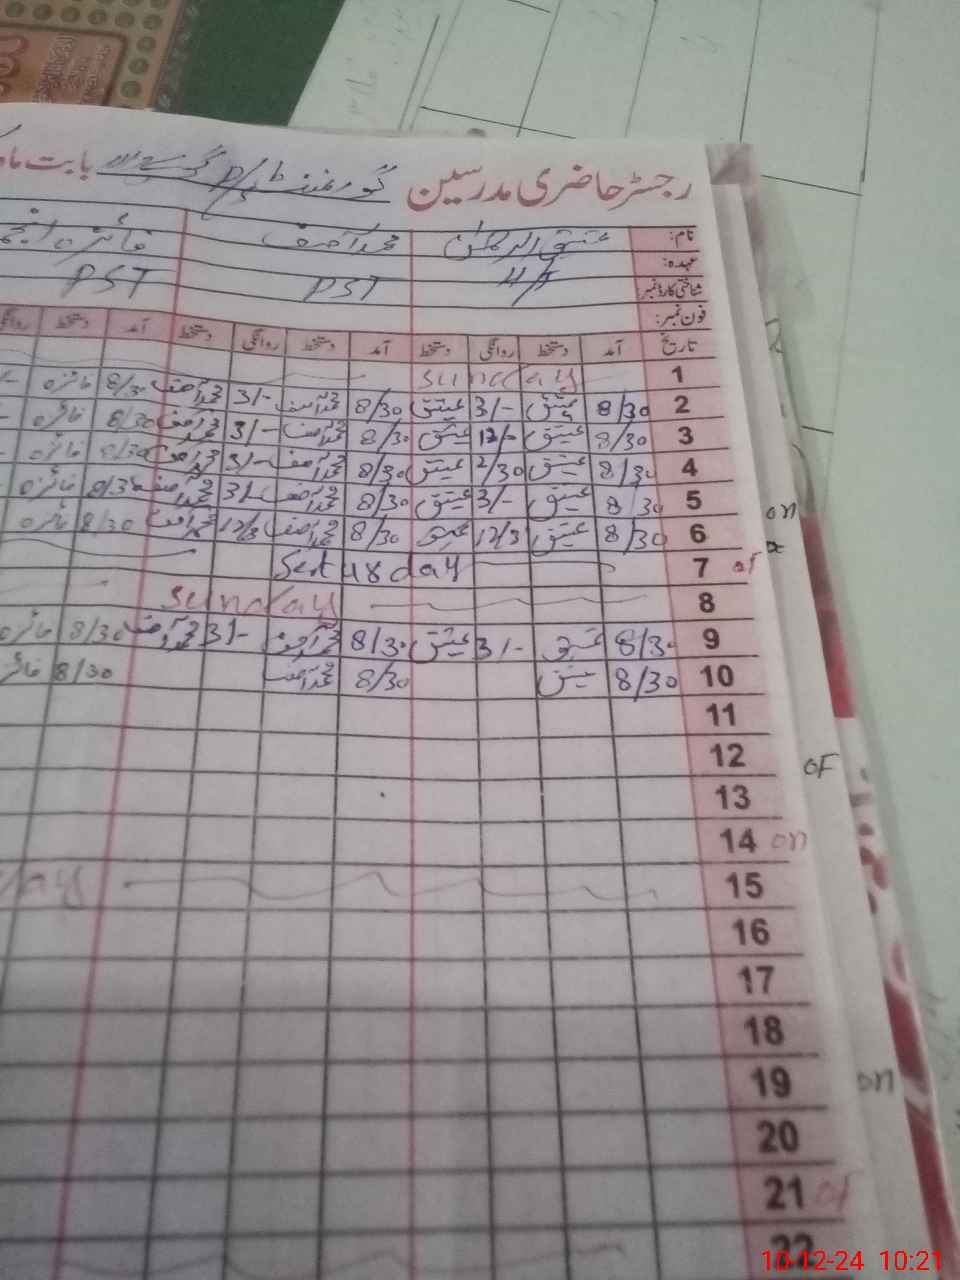 رجسٹر حاضری مدرسین گورنمنٹ P/S بابت ماہ
نام: عتیق الرحمٰن محمد آصف فائزہ انجم
عہدہ: H/T PST PST
شناختی کارڈ نمبر:
فون نمبر:
تاریخ آمد دستخط روانگی دستخط آمد دستخط روانگی دستخط آمد دستخط روانگی
1 Sunday
2 8/30 عتیق 3/- عتیق 8/30 محمد آصف 3/- محمد آصف 8/30 فائزہ
3 8/30 عتیق 12/- عتیق 8/30 محمد آصف 3/- محمد آصف 8/30 فائزہ
4 8/30 عتیق 2/30 عتیق 8/30 محمد آصف 3/- محمد آصف 8/30 فائزہ
5 8/30 عتیق 3/- عتیق 8/30 محمد آصف 3/- محمد آصف 8/30 فائزہ
on
6 8/30 عتیق 12/3 عتیق 8/30 محمد آصف 12/3 محمد آصف 8/30 فائزہ
7 of
8 Sunday
9 8/30 عتیق 3/- عتیق 8/30 محمد آصف 3/- محمد آصف 8/30 فائزہ
10 8/30 عتیق 8/30 محمد آصف 8/30 فائزہ
11
12
oF
13
14 on
15 day
16
17
18
19
on
20
21 of
22
10-12-24 10:21